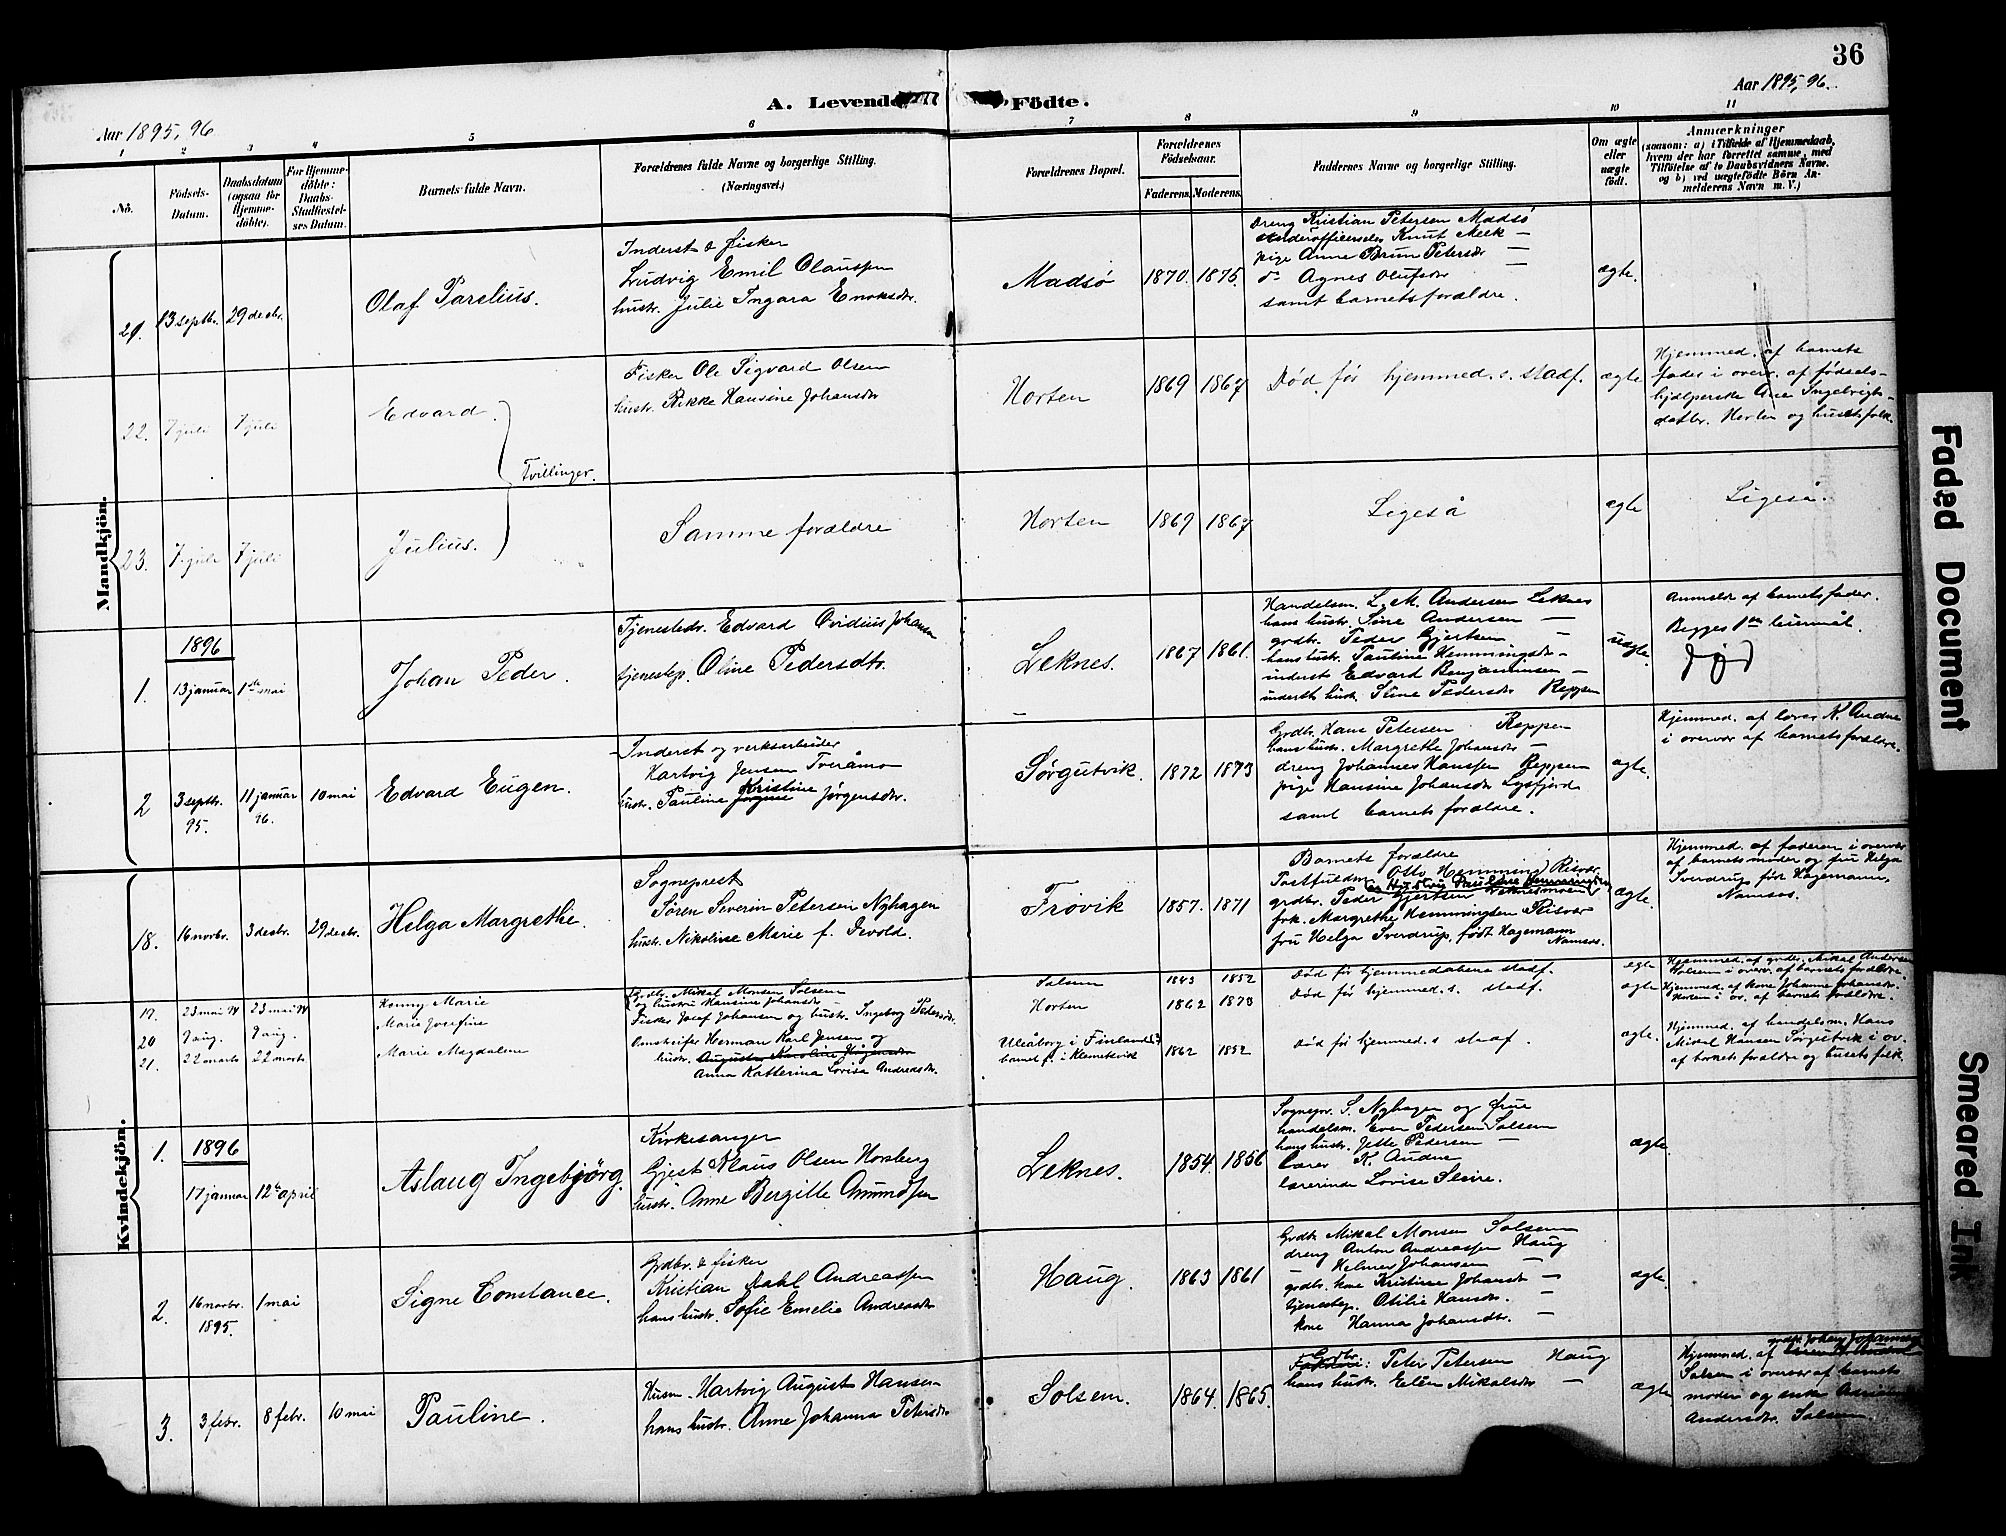 36
A. Levende Födte.
Aar 1895, 96
Aar 1895, 96.
1 2 3 4 5 6 7 8 9 10 11
No.
Födsels-Datum.
Daabsdatum (ogsaa for Hjemmedöbte).
For Hjemmedöbte: Daabs-Stadfæstelses Datum.
Barnets fulde Navn.
Forældrenes fulde Navne og borgerlige Stilling.
(Næringsvei.)
Forældrenes Bopæl.
Forældrenes Födselsaar.
Faderens. Moderens.
Faddernes Navne og borgerlige Stilling.
Om ægte eller uægte födt.
Anmærkninger
(saasom: a) i Tilfælde af Hjemmedaab, hvem der har forrettet samme, med Tilföielse af to Daabsvidners Navne. og b) ved uægtefödte Börn Anmelderens Navn m. V.)
Mandkjön.
21. 13 septbr. 29 decbr.
Olaf Parelius.
Inderst & fisker
Ludvig Emil Olaussen
hustr. Julie Ingara Enoksdtr.
Madsø 1870. 1875.
Dreng Kristian Petersen Madsø
underofficerselev Knut Meek —
pige Anne Brun Petersdtr —
do Agnes Olufsdtr
samt barnets forældre.
ægte.
22. 7 juli 7 juli
Edvard.
Tvillinger.
Fisker Ole Sigvard Olsen
hustr. Rikke Hansine Johansdtr
Horten 1869 1867
Død før hjemmed. s. stadf.
ægte
Hjemmed. af barnets
fader i overv. af fødsels-
hjælperske Ane Ingebrigts-
datter. Horten og husets folk.
23. 7 juli 7 juli
Julius.
Samme forældre
Horten 1869 1867
Ligeså
ægte
Ligeså.
1896
1. 13 januar 1ste mai
Johan Peder.
Tjenestedr. Edvard Ovidius Johansen
tjenestep. Oline Pedersdtr.
Leknes. 1867 1861.
Handelsm. L. M. Andersen Leknes
hans hustr. Sine Andersen —
grdbr. Peder Gjertsen —
hans hustr. Pauline Hemmingsdtr —
inderst Edvard Benjaminsen —
inderst hustr. Stine Pedersdtr Reppen
uægte.
Anmeldt af barnets fader.
Begges 1ste leiermål.
død
2 3 septbr. 95. 11 januar 96. 10 mai
Edvard Eugen.
Inderst og verksarbeider
Hartvig Jensen Tveråmo
hustr. Pauline Jørgine Kristine Jørgensdtr.
Sørgutvik. 1872 1873
Grdbr. Hans Petersen Reppen
hans hustr. Margrethe Johansdtr —
dreng Johannes Hanssen Reppen
pige Hansine Johansdtr Lysfjord
samt barnets forældre.
ægte.
Hjemmed. af lærer K. Audne
i overvær af barnets forældre.
Kvindekjön.
18. 16 novbr. 3 decbr. 29 decbr.
Helga Margrethe.
Sogneprest
Søren Severin Petersen Nyhagen
hustr. Nikoline Marie f. Devold.
Frøvik 1857. 1871
Barnets forældre
Postfuldm. Otto Hemmingsen Risvær
og Hustru Pauline Hemmingsen
grdbr. Peder Gjertsen
frk. Margrethe Hemmingsen Risvær
fru Helga Sverdrup, født Hagemann
Namsos.
ægte.
Hjemmed. af faderen i overvær
af barnets moder og fru Helga
Sverdrup født Hagemann,
Namsos.
19. 23 mai 23 mai
Marie
Grdbr. Mikal Monsen Solsem
og hustru Hansine Johansdtr
Solsem 1843 1852
Død før hjemmedåbens stadf.
ægte
Hjemmed. af grdbr. Mikal Andersen
Solsem i overv. af barnets forældre.
20 7 aug. 7 aug.
Marie Josefine
Fisker Josef Johansen og hustr. Ingeborg Pedersdtr.
Horten 1862 1873
Død før hjemmed. s. stadf.
ægte
Hjemmed. af kone Johanne Johansdtr.
Horten i ov. af barnets forældre.
21. 22 marts 22 marts
Marie Magdalene
Herman Karl Jensen og
hustr. Augusta Karoline Hagensdtr
Anna Katterina Lovisa Andreasdtr.
Uleåborg i Finland
barnet f. i Klemetsvik 1862 1852
Død før hjemmed. s. stadf.
ægte.
Hjemmed. af handelsm. Hans
Mikal Hansen Sørgutvik i ov.
af barnets forældre og husets folk.
1896
1. 17 januar 12te april
Aslaug Ingebjörg.
Kirkesanger
Gjest Klaus Olsen Horsberg
hustr. Anne Bergitte Amundsen
Leknes. 1854. 1856
Sognepr. S. Nyhagen og frue
handelsm. Even Pedersen Solsem
hans hustr. Jette Pedersen —
lærer K. Audne
lærerinde Lovise Sleire.
ægte.
2. 16 novbr. 1895. 1 mai
Signe Constance.
Grdbr. & fisker
Kristian Dahl Andreassen
hans hustr. Sofie Emelie Andreasdtr
Haug. 1863 1861
Grdbr. Mikal Monsen Solsem
dreng Anton Andreassen Haug
— Helmer Johansen —
grdbr. kone Kristine Johansdtr —
tjenestep. Otilie Hansdtr. —
kone Hanna Johansdtr. —
ægte.
3. 3 febr. 8 febr. 10 mai
Pauline.
Husm. Hartvig August Hansen
hans hustr. Anne Johanna Petersdtr
Solsem. 1864. 1865.
Grdbr. Peter Petersen Haug
hans hustr. Ellen Mikalsdtr —
ægte.
Hjemmed. af grdbr. Johan Johannesen
Solsem i overvær af barnets
moder og enke
Andersdtr. Solsem.
Faded Document
Smeared Ink